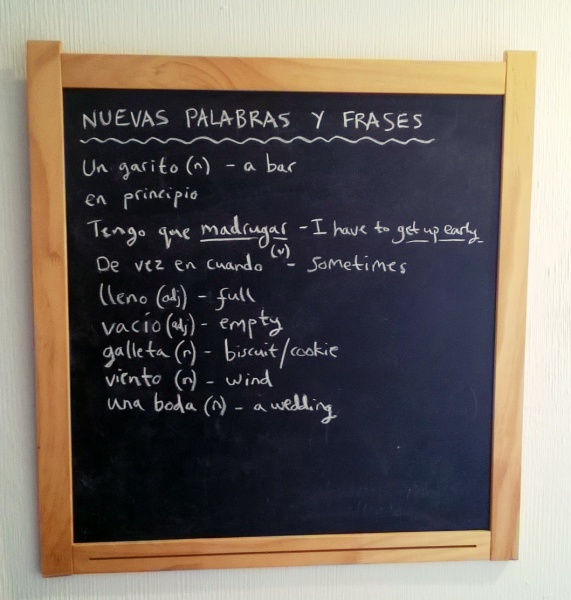 NUEVAS PALABRAS Y FRASES
Un garito (n) - a bar
en principio
Tengo que madrugar - I have to get up early
(v)
De vez en cuando - sometimes
lleno (adj) - full
vacío (adj) - empty
galleta (n) - biscuit/cookie
viento (n) - wind
una boda (n) - a wedding